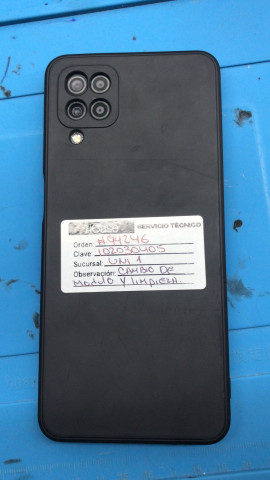 SERVICIO TÉCNICO
Orden: #94246
Clave: 102030405
Sucursal: UNI 1
Observación: CAMBIO DE
MODULO Y LIMPIEZA.